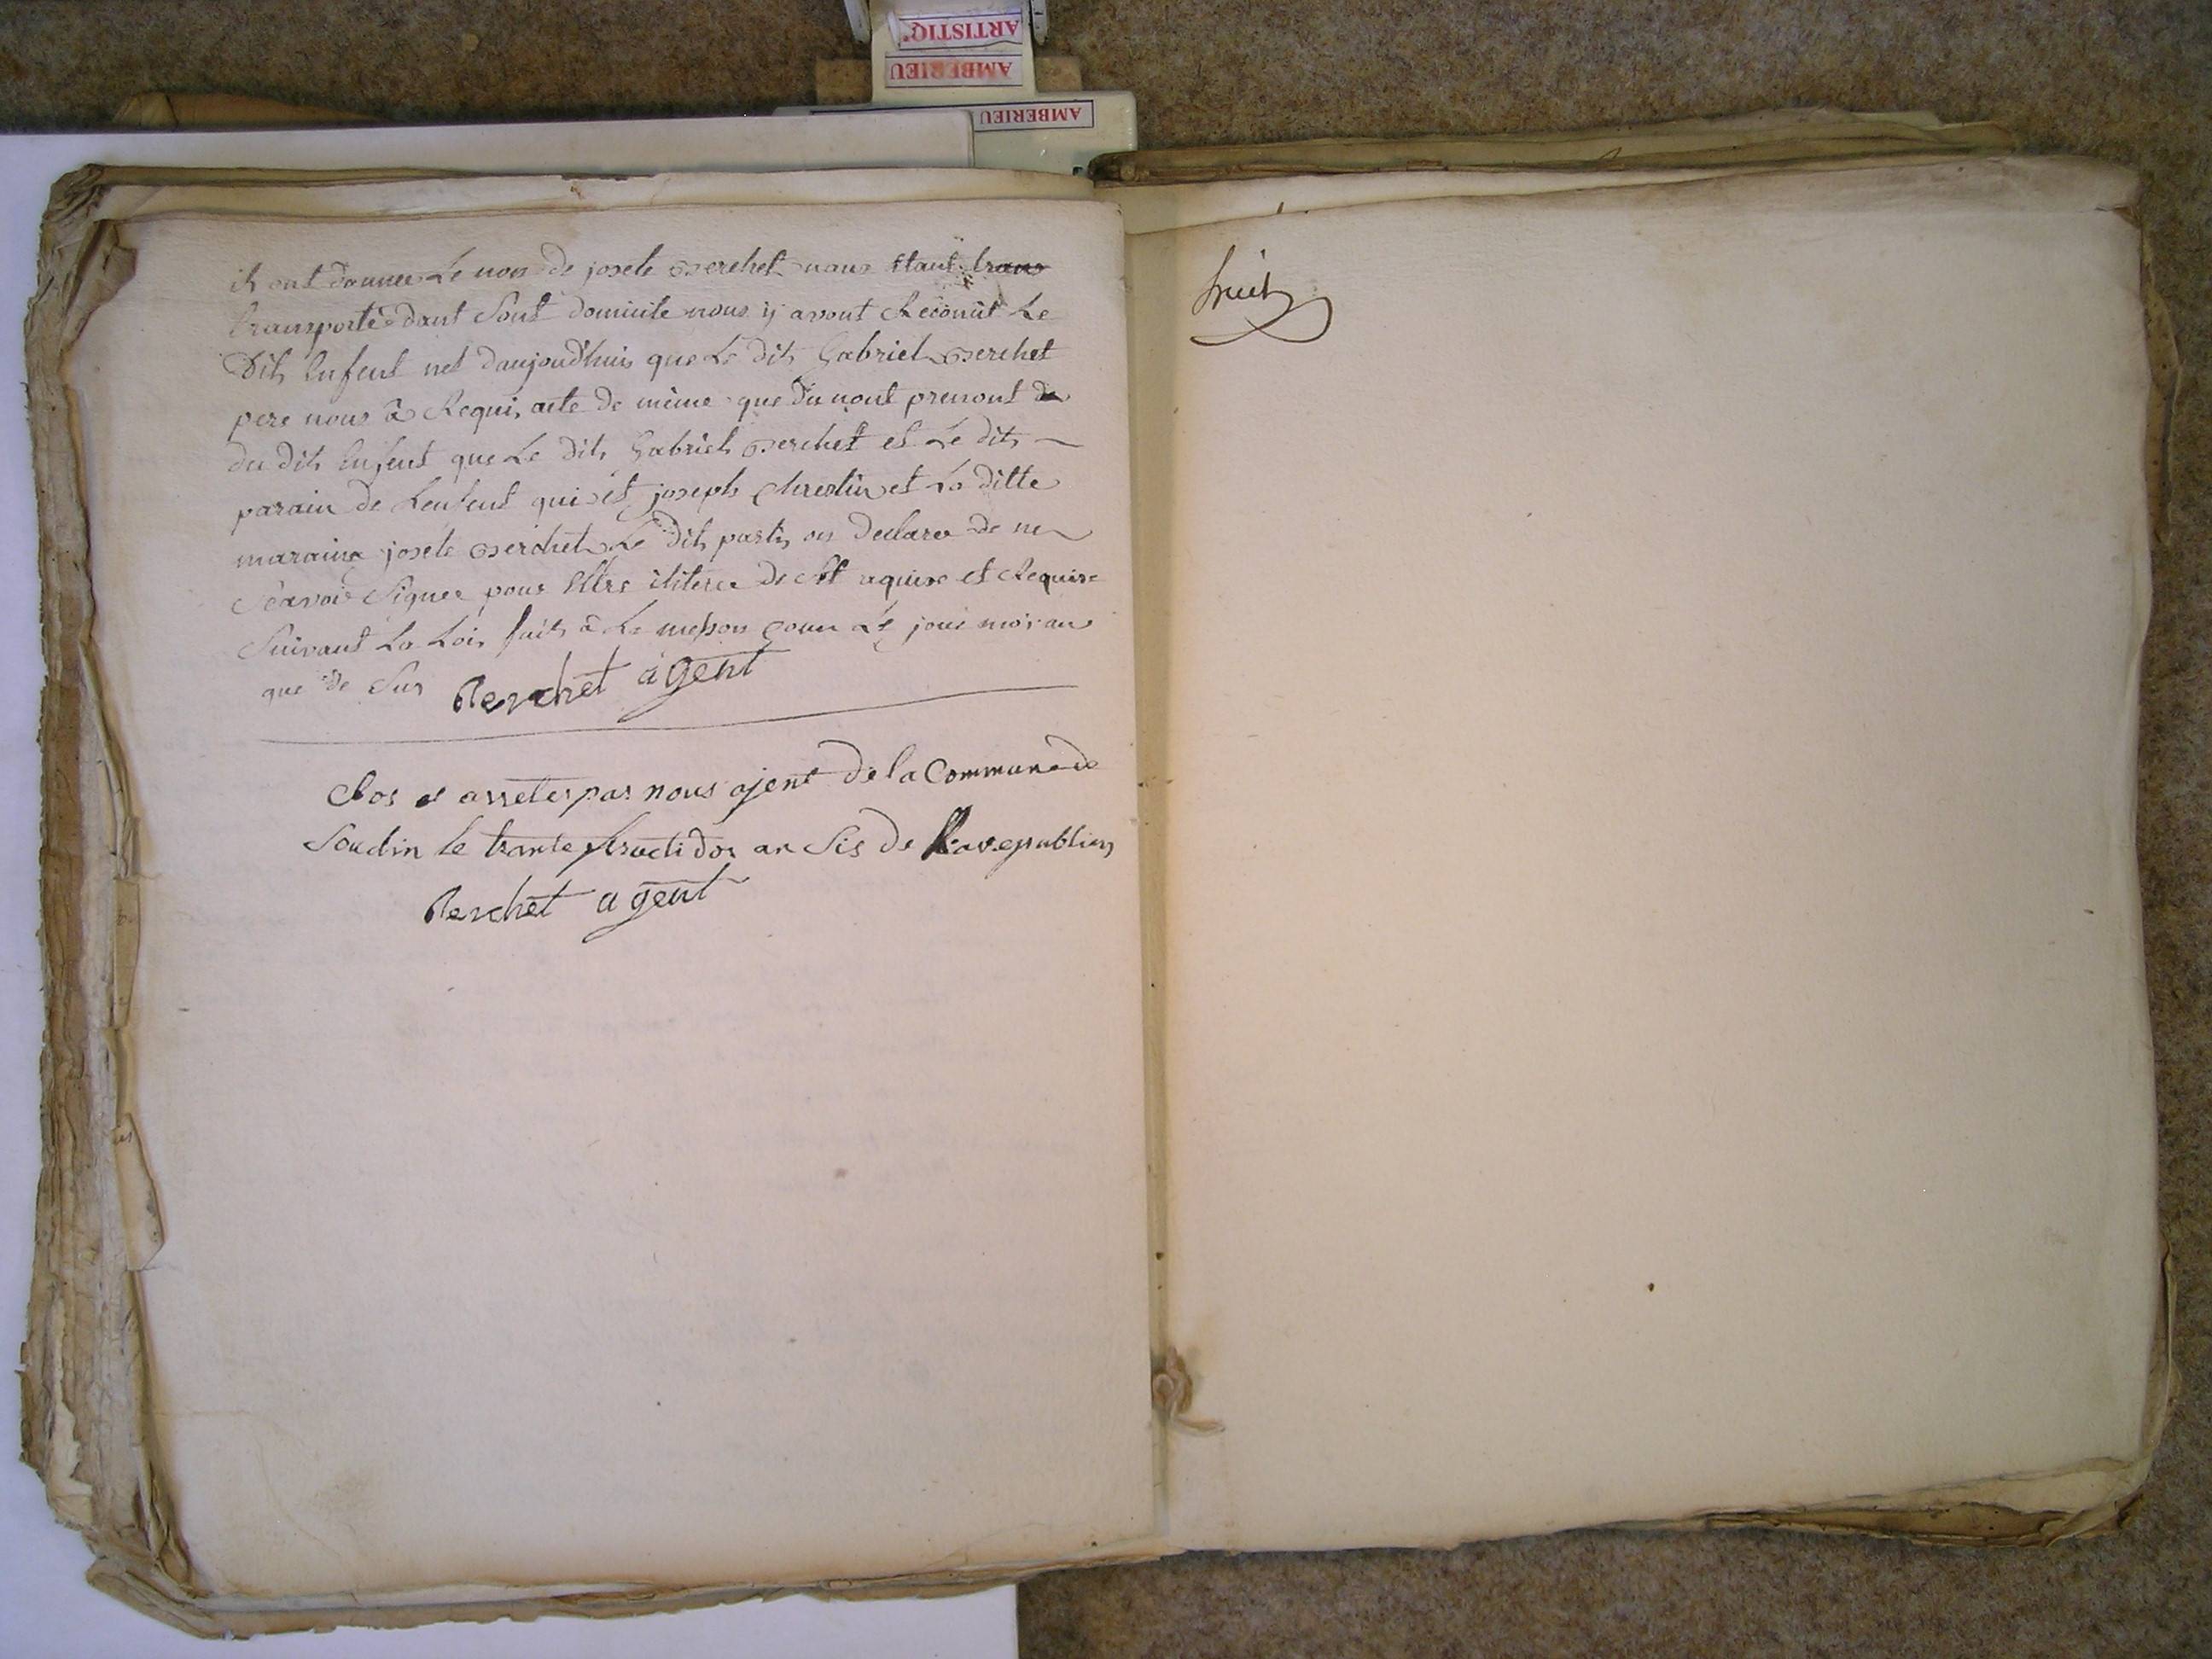 ARTISTIQ'
AMBERIEU
AMBERIEU
il ont donnee Le nom de josete perchet nous étant trans
transporté dant Sont domicile nous y avont Reconüt Le
Dit Enfent net daujoud'huis que Le dit Gabriel perchet
pere nous à Requi, acte de mème que du nont prenont de
du dit Enfent que Le dit Gabriel perchet et Le dit
parain de Lenfent qui est joseph Chrestin et La ditte
maraine josete perchet Le dit partis on Declare de ne
Sçavoir Signee pourEttre de aquise et Requise
Suivant La Loi, fait à La meson Le jour mois an
que de Sus Perchet àgent
Clos et arreter par nous ajent de la Commune de
Soucin le trante fructidor an Sis de La republien
Perchet agent
huit